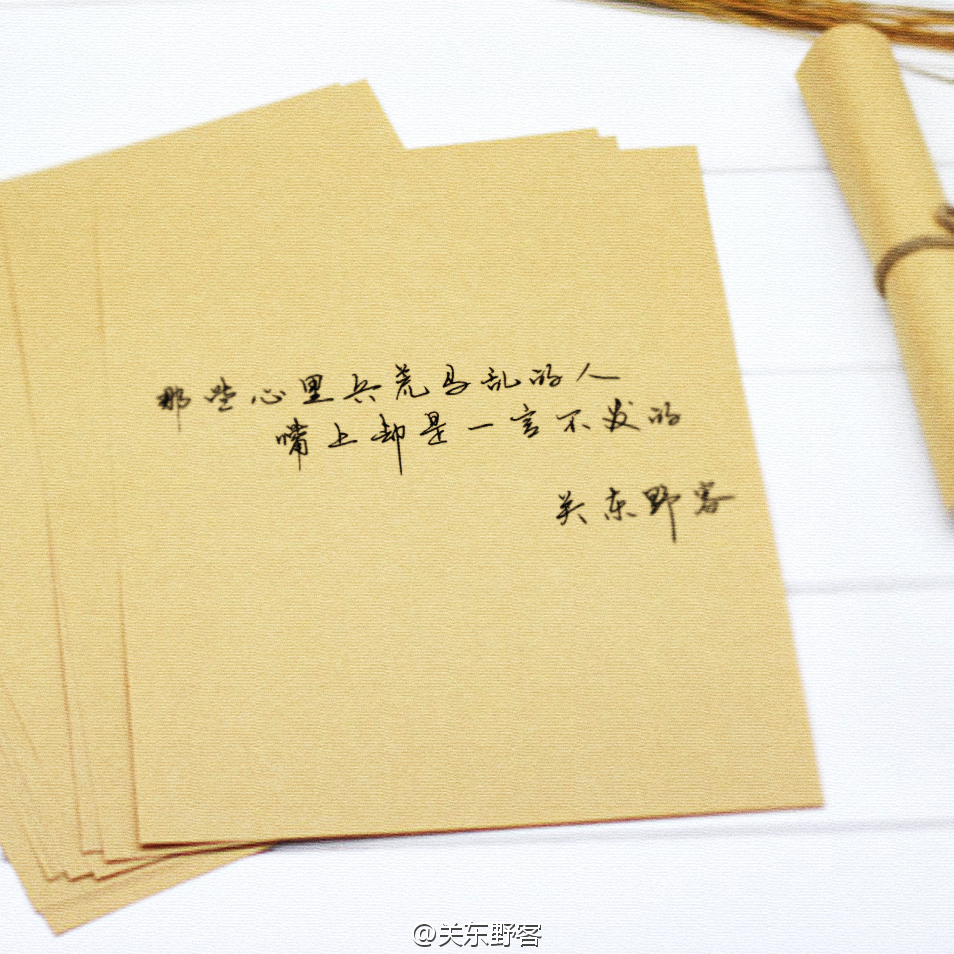 那些心里兵荒马乱的人
嘴上却是一言不发的
关东野客
@关东野客